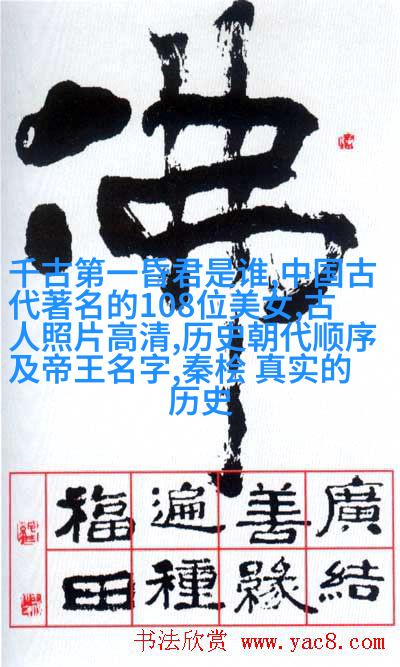 佛
千古第一昏君是谁,中国古
代著名的108位美女,古
人照片高清,历史朝代顺序
及帝王名字,秦桧 真实的
历史
廣結
善緣
遍種
福田
书法欣赏 www.yac8.com